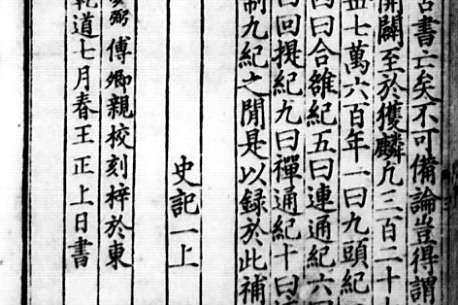 古書亡矣不可備論豈得謂
開闢至於獲麟凢三百二十
丗七萬六百年一曰九頭紀
曰合雒紀五曰連通紀六
曰回提紀九曰禪通紀十曰
制九紀之間是以録於此補
史記一上
弼傅卿親校刻梓於東
乾道七月春王正上日書